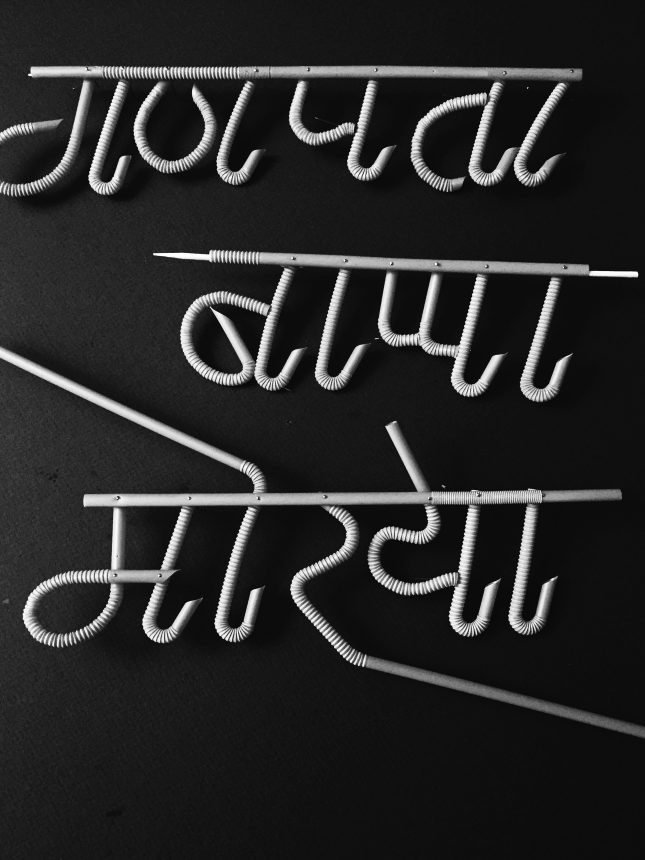 गणपता
बाप्पा
मोरया